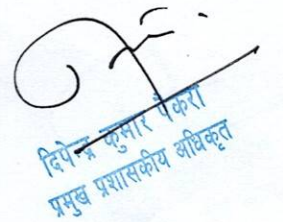 दिपेन्द्र कुमार पौकरा
प्रमुख प्रशासकीय अधिकृत